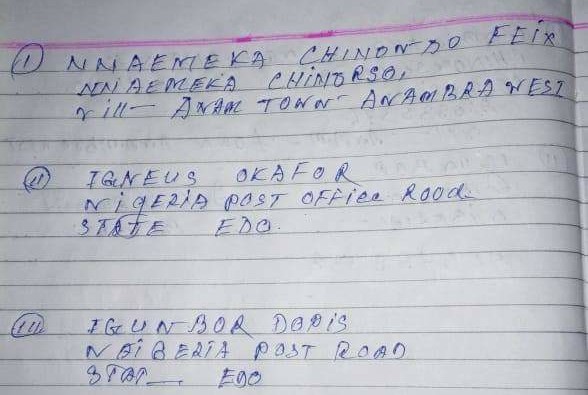 (i) NNAEMEKA CHINONDO FEIX
NNAEMEKA CHINORSO,
vill- ANAM TOWN ANAMBRA WEST
(ii) IGNEUS OKAFOR
NIGERIA POST OFFICE ROOD.
STATE EDO.
(iii) IGUNBOR DORIS
NAIBERIA POST ROAD
STAT- EDO